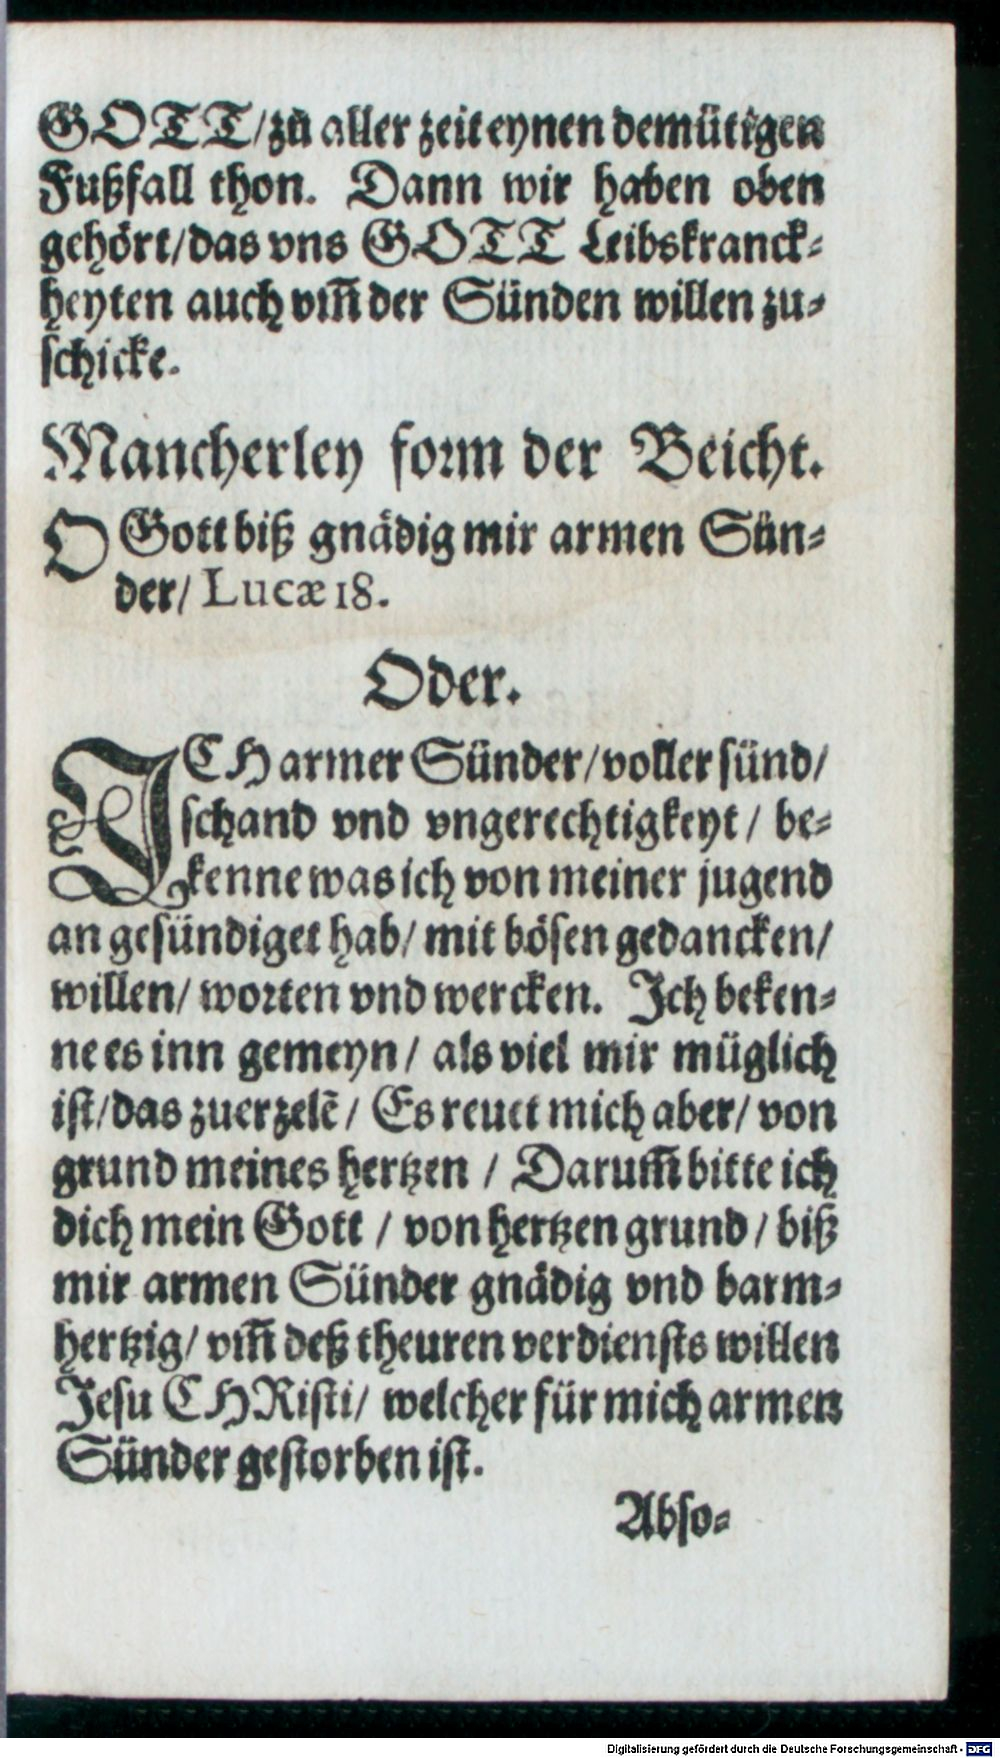 GOTT/zů aller zeit eynen demütigen
Fußfall thon. Dann wir haben oben
gehört/das vns GOTT Leibskranck-
heyten auch vm̃ der Sünden willen zu-
schicke.
Mancherley form der Beicht.
O Gott biß gnädig mir armen Sün-
der/ Lucæ 18.
Oder.
ICH armer Sünder/voller sünd/
schand vnd vngerechtigkeyt / be-
kenne was ich von meiner jugend
an gesündiget hab/ mit bösen gedancken/
willen/ worten vnd wercken. Ich beken-
ne es inn gemeyn / als viel mir müglich
ist/das zuerzelẽ / Es reuet mich aber/ von
grund meines hertzen / Darum̃ bitte ich
dich mein Gott / von hertzen grund / biß
mir armen Sünder gnädig vnd barm-
hertzig/ vm̃ deß theuren verdiensts willen
Jesu CHRisti/ welcher für mich armen
Sünder gestorben ist.
Abso-
Digitalisierung gefördert durch die Deutsche Forschungsgemeinschaft - DFG